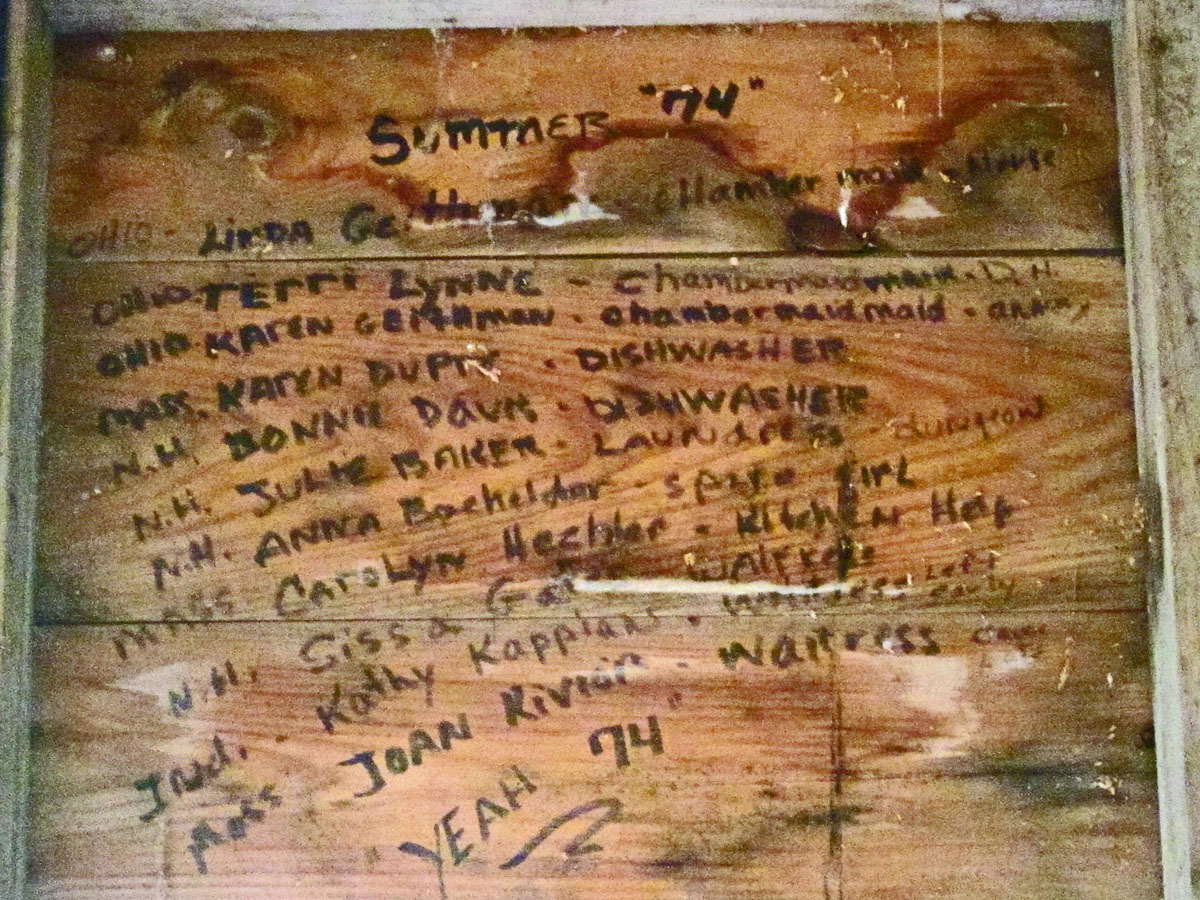 SUMMER "74"
OHIO - LINDA Geithman - chamber maid - House
OHIO - TERRI LYNNE - Chambermaid maid - D.H.
OHIO KAREN GEITHMAN - chambermaid maid -
MASS. KAREN - DISHWASHER
N.H. BONNIE DAVIS - DISHWASHER
N.H. JULIE BAKER - LAUNDRESS - dungeon
N.H. ANNA Bachelder - spare girl
MASS CAROLYN Hechler - KITCHEN Help
N.H. Sissa
Ind. - Kathy Kapplan - waitress Left early
Mass JOAN Rivoir - waitress
"YEAH 74"